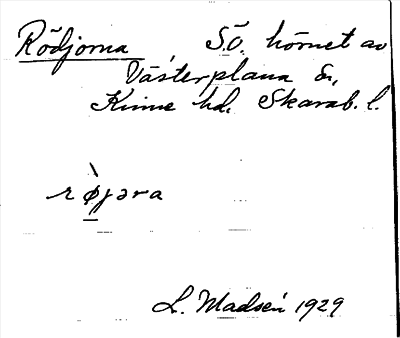 Rödjorna, S.Ö. hörnet av
Västerplana sn,
Kinne hd. Skarab. l.
røjəra
L. Madsén 1929